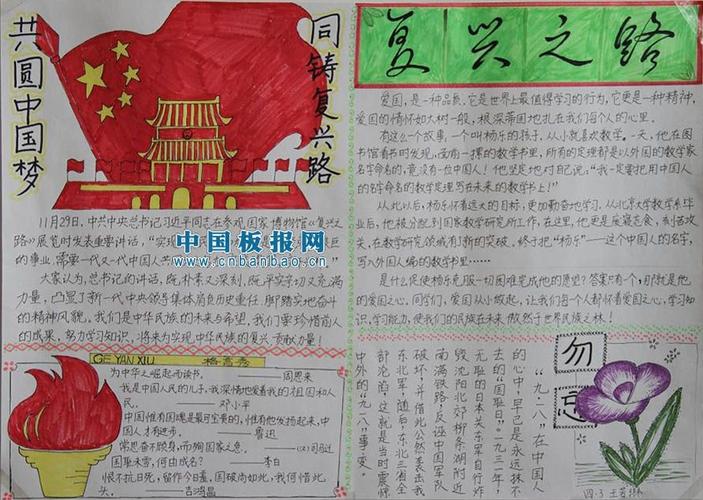 共圆中国梦
同铸复兴路
11月29日,中共中央总书记习近平同志在参观国家博物馆《复兴
路》展览时发表重要讲话,“实现
的事业,需要一代又一代中国人共
大家认为,总书记的讲话,既朴素又深刻,既平实亲切又充满
力量,凸显了新一代中央领导集体肩负历史重任、脚踏实地奋斗
的精神风貌。我们是中华民族的未来与希望,我们要珍惜前人
的成果,努力学习知识,将来为实现中华民族的复兴贡献力量!
中国板报网
www.cnbanbao.cn
GE YAN XIU
格言秀
为中华之崛起而读书。——周恩来
我是中国人民的儿子,我深情地爱着我的祖国和人
民。——邓小平
中国惟有国魂是最可宝贵的,惟有他发扬起来,中
国人才有进步。——鲁迅
常思奋不顾身,而殉国家之急。——(汉)司马迁
国耻未雪,何由成名?——李白
恨不抗日死,留作今日羞。国破尚如此,我何惜此
头。——吉鸿昌
复兴之路
爱国,是一种品质,它是世界上最值得学习的行为,它更是一种精神,
爱国的情怀如大树一般,根深蒂固地扎在我们每个人的心里。
有这么一个故事,一个叫杨乐的孩子,从小就喜欢数学。一天,他在图
书馆看书时发现,面前一摞的数学书里,所有的定理都是以外国的数学家
名字命名的,竟没有一位中国人!他坚定地对自己说:“我一定要把用中国人
的名字命名的数学定理写在未来的数学书上!”
从此以后,杨乐怀着远大的目标,更加勤奋地学习。从北京大学数学系毕业
后,他被分配到国家数学研究所工作,在这里,他更是废寝忘食,刻苦攻
关,在数学研究领域有了新的突破。终于把“杨乐”——这个中国人的名字,
写入外国人编的数学书里……
是什么促使杨乐克服一切困难完成他的愿望?答案只有一个,那就是他
的爱国之心。同学们,爱国从小做起,让我们每个人都怀着爱国之心,学习知
识,学习能力,使我们的民族在未来傲然于世界民族之林!
勿忘
“九·八”在中国人
的心中早已是永远抹不
去的“国耻日”。一九三一年,
无耻的日本关东军自行炸
毁沈阳北郊柳条湖附近
南满铁路反诬中国军队
破坏,并借此公然袭击我
东北军,随后,东北三省全
部沦陷,这就是当时震惊
中外的“九·八”事变。
四.3